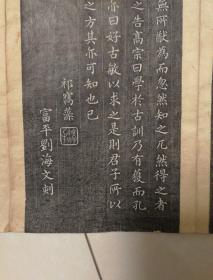 無所猷為而忽然知之兀然得之者
之告高宗曰學於古訓乃有獲而孔
亦曰好古敏以求之是則君子所以
之方其亦可知也已
祁寯藻
富平劉海文刻